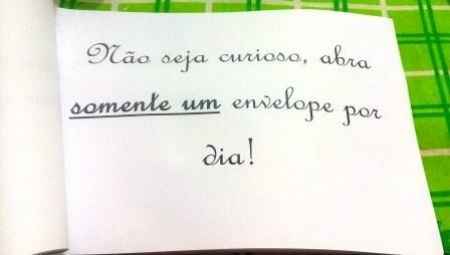 Não seja curioso, abra
somente um envelope por
dia!